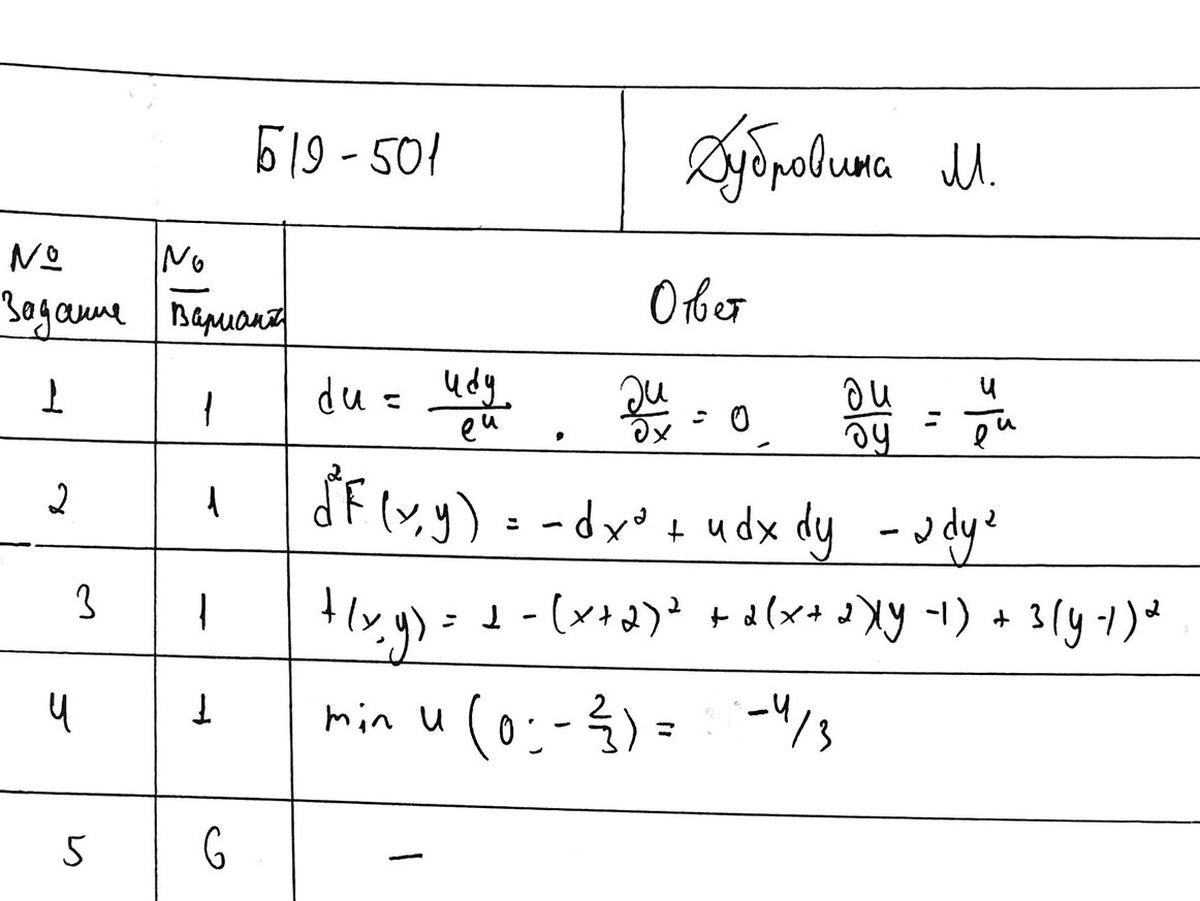 Б19-501 Дубровина М.
№ Задание № Варианта Ответ
1 1 du = 4dy/e^u . ∂u/∂x = 0, ∂u/∂y = 4/e^u
2 1 d²F(x,y) = -dx² + 4dx dy - 2dy²
3 1 f(x,y) = 1 - (x+2)² + 2(x+2)(y-1) + 3(y-1)²
4 1 min u (0; -2/3) = -4/3
5 6 —